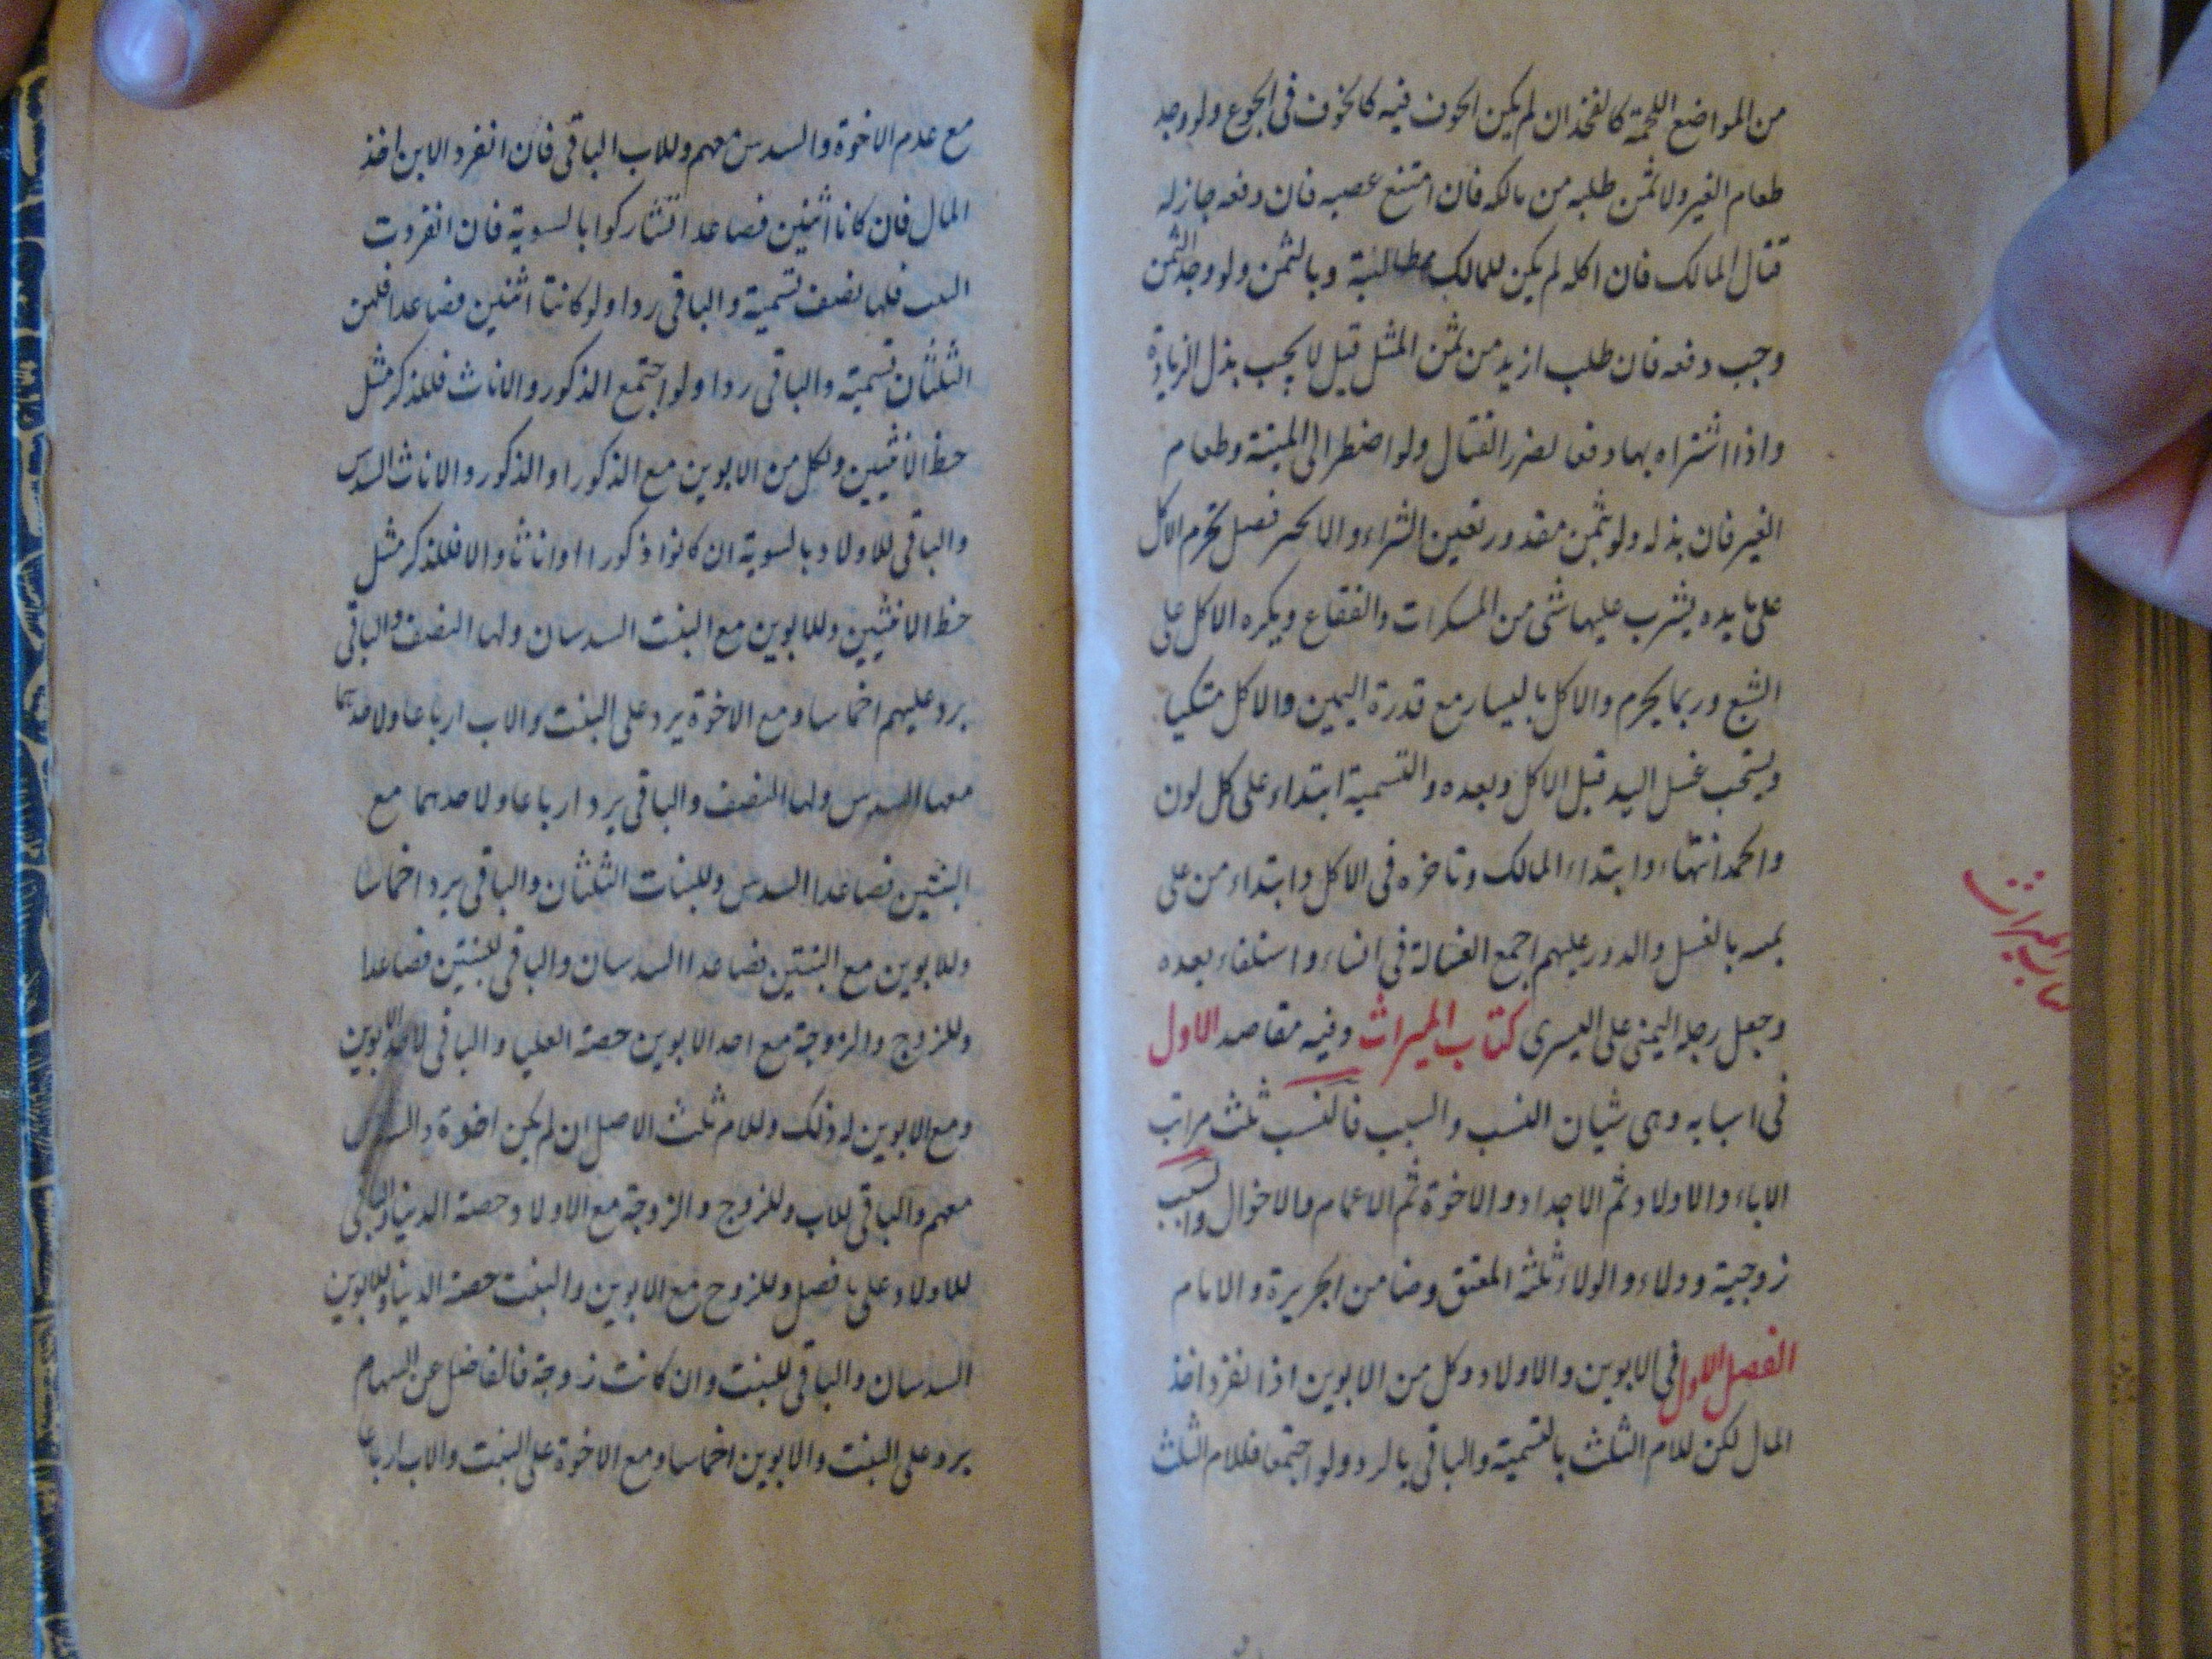 من المواضع اللحمة كالفخذ ان لم يكن الخوف فيه كالخوف في الجوع ولو وجد
طعام الغير ولا ثمن طلبه من مالكه فان امتنع غصبه فان دفعه جاز له
قتال المالك فان اكله لم يكن للمالك مطالبته وبالثمن ولو وجد الثمن
وجب دفعه فان طلب ازيد من ثمن المثل قيل لا يجب بذل الزيادة
واذا اشتراه بها دفعا لضرر القتال ولو اضطر الى الميتة وطعام
الغير فان بذله ولو بثمن مقدور تعين الشراء والا تخير فصل يحرم الاكل
على مايده يشرب عليها شي من المسكرات والفقاع ويكره الاكل على
الشبع وربما يحرم والاكل باليسار مع قدرة اليمين والاكل متكيا
ويستحب غسل اليد قبل الاكل وبعده والتسمية ابتداء على كل لون
والحمد انتهاء وابتداء المالك وتاخره في الاكل وابتداء من على
يمينه بالغسل والدور عليهم اجمع الغسالة في اناء واستلقاء بعده
وجعل رجله اليمنى على اليسرى كتاب الميراث وفيه مقاصد الاول
في اسبابه وهي شيان النسب والسبب فالنسب ثلث مراتب
الاباء والاولاد ثم الاجداد والاخوة ثم الاعمام والاخوال والسبب
زوجية وولاء والولاء ثلثة المعتق وضامن الجريرة والامام
الفصل الاول في الابوين والاولاد وكل من الابوين اذا انفرد اخذ
المال لكن للام الثلث بالتسمية والباقي بالرد ولو اجتمعا فللام الثلث
كتاب الميراث
مع عدم الاخوة والسدس معهم وللاب الباقي فان انفرد الابن اخذ
المال فان كانا اثنين فصاعدا تشاركوا بالسوية فان انفردت
البنت فلها نصف تسمية والباقي ردا ولو كانتا اثنتين فصاعدا فلهن
الثلثان تسمية والباقي ردا ولو اجتمع الذكور والاناث فللذكر مثل
حظ الانثيين ولكل من الابوين مع الذكور او الذكور والاناث السدس
والباقي للاولاد بالسوية ان كانوا ذكورا او اناثا والا فللذكر مثل
حظ الانثيين وللابوين مع البنت السدسان ولها النصف والباقي
يرد عليهم اخماسا ومع الاخوة يرد على البنت والاب ارباعا ولاحدهما
معها السدس ولها النصف والباقي يرد ارباعا ولاحدهما مع
البنتين فصاعدا السدس وللبنات الثلثان والباقي يرد اخماسا
وللابوين مع البنتين فصاعدا السدسان والباقي للبنتين فصاعدا
وللزوج والزوجة مع احد الابوين حصة العليا والباقي لاحد الابوين
ومع الابوين له ذلك وللام ثلث الاصل ان لم يكن اخوة والسدس
معهم والباقي للاب وللزوج والزوجة مع الاولاد حصة الدنيا والباقي
للاولاد على ما فصل وللزوج مع الابوين والبنت حصة الدنيا وللابوين
السدسان والباقي للبنت وان كانت زوجة فالفاضل عن السهام
يرد على البنت والابوين اخماسا ومع الاخوة على البنت والاب ارباعا